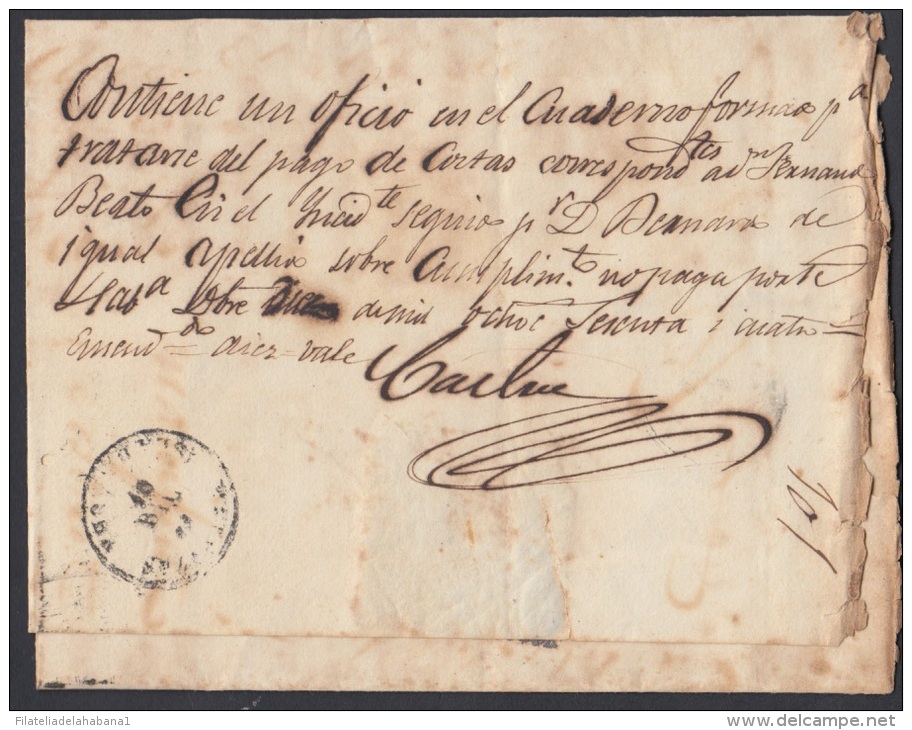 Contiene un oficio en el Cuaderno formado pa
tratarse del pago de Costas correspondtes a Dn Fernando
Beato En el Incidte seguido pr D Bernardo de
igual apellido sobre Cumplimto no paga porte
Haba Dbre de mil ochoc sesenta i cuatro=
Emenddo=diez=vale
10 DIC
Filateliadelahabana1
www.delcampe.net